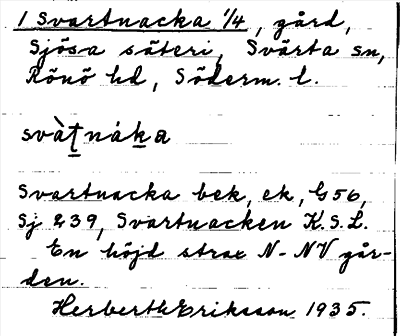 1 Svartnacka 1/4, gård,
Sjösa säteri, Svärta sn,
Rönö hd, Söderm. l.
svàt̠nák̠a
Svartnacka bek, ek, G56,
Sj 239, Svartnacken K.S.L.
En höjd strax N-NV går-
den.
Herberth Eriksson 1935.